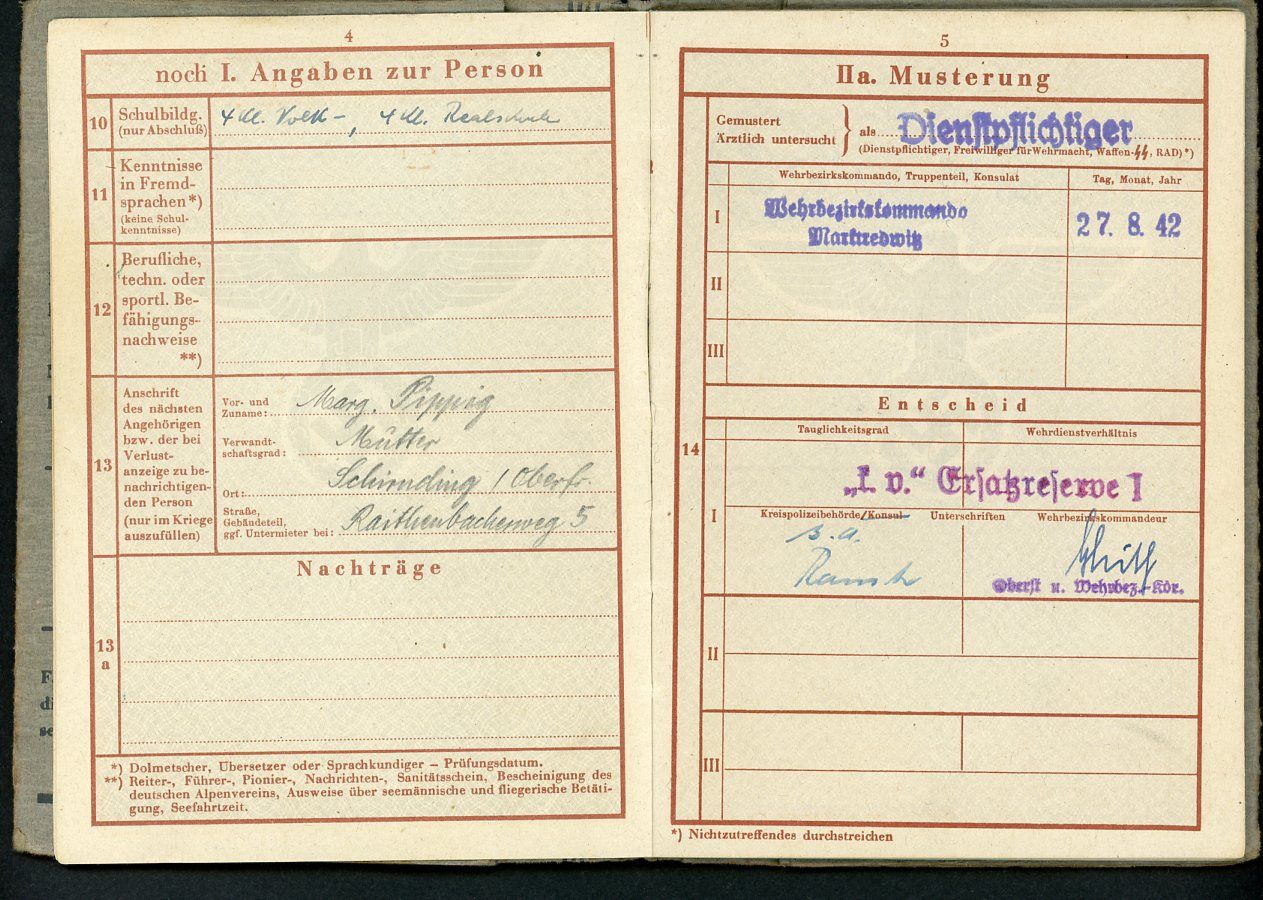 4
noch I. Angaben zur Person
10
Schulbildg.
(nur Abschluß)
4 Kl. Volk-, 4 Kl. Realschule
11
Kenntnisse
in Fremd-
sprachen*)
(keine Schul-
kenntnisse)
12
Berufliche,
techn. oder
sportl. Be-
fähigungs-
nachweise
**)
13
Anschrift
des nächsten
Angehörigen
bzw. der bei
Verlust-
anzeige zu be-
nachrichtigen-
den Person
(nur im Kriege
auszufüllen)
Vor- und
Zuname: Marg. Pippig
Verwandt-
schaftsgrad: Mutter
Ort: Schirnding / Oberfr.
Straße,
Gebäudeteil,
ggf. Untermieter bei: Raithenbacherweg 5
Nachträge
13
a
*) Dolmetscher, Übersetzer oder Sprachkundiger – Prüfungsdatum.
**) Reiter-, Führer-, Pionier-, Nachrichten-, Sanitätsschein, Bescheinigung des
deutschen Alpenvereins, Ausweise über seemännische und fliegerische Betäti-
gung, Seefahrtzeit.
5
IIa. Musterung
Gemustert
Ärztlich untersucht } als Dienstpflichtiger
(Dienstpflichtiger, Freiwilliger für Wehrmacht, Waffen-SS, RAD)*)
Wehrbezirkskommando, Truppenteil, Konsulat
Tag, Monat, Jahr
I
Wehrbezirkskommando
Marktredwitz
27. 8. 42
II
III
Entscheid
14
Tauglichkeitsgrad
Wehrdienstverhältnis
I
„k. v.“ Ersatzreserve I
Kreispolizeibehörde/Konsul Unterschriften Wehrbezirkskommandeur
Oberst u. Wehrbez.-Kdr.
II
III
*) Nichtzutreffendes durchstreichen